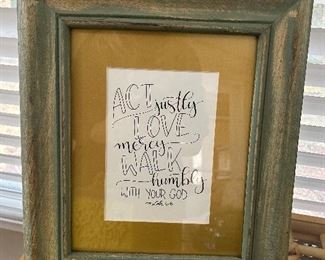 ACT justly
LOVE
mercy
WALK
humbly
WITH YOUR GOD